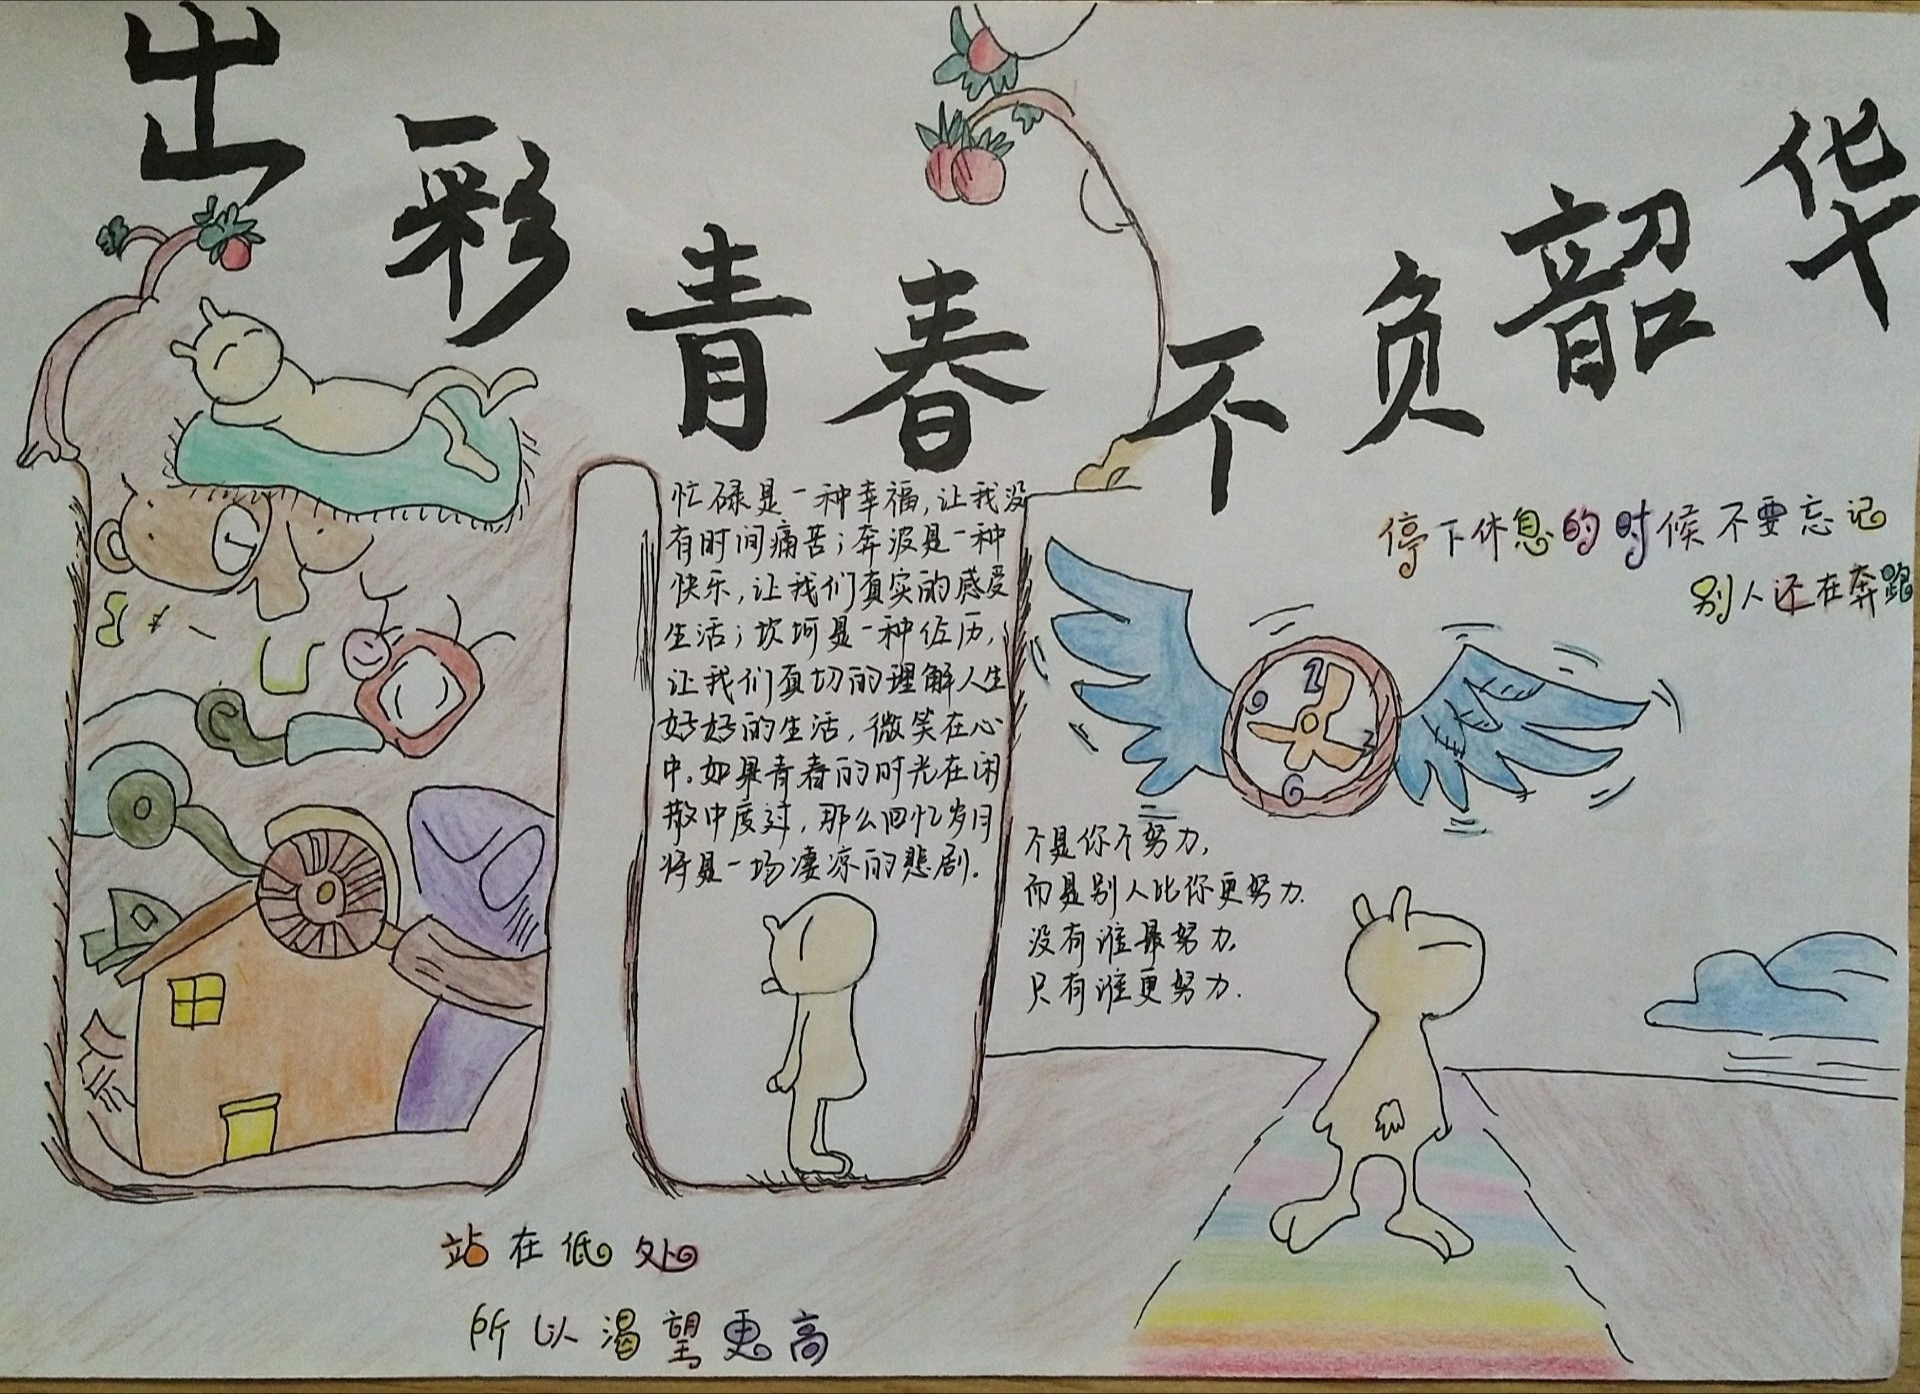 出彩青春不负韶华
忙碌是一种幸福,让我没
有时间痛苦;奔波是一种
快乐,让我们真实的感受
生活;坎坷是一种佐历,
让我们真切的理解人生
好好的生活,微笑在心
中。如果青春的时光在闲
散中度过,那么回忆岁月
将是一场凄凉的悲剧.
停下休息的时候不要忘记
别人还在奔跑
12
9
3
6
不是你不努力,
而是别人比你更努力.
没有谁最努力,
只有谁更努力.
站在低处
所以渴望更高